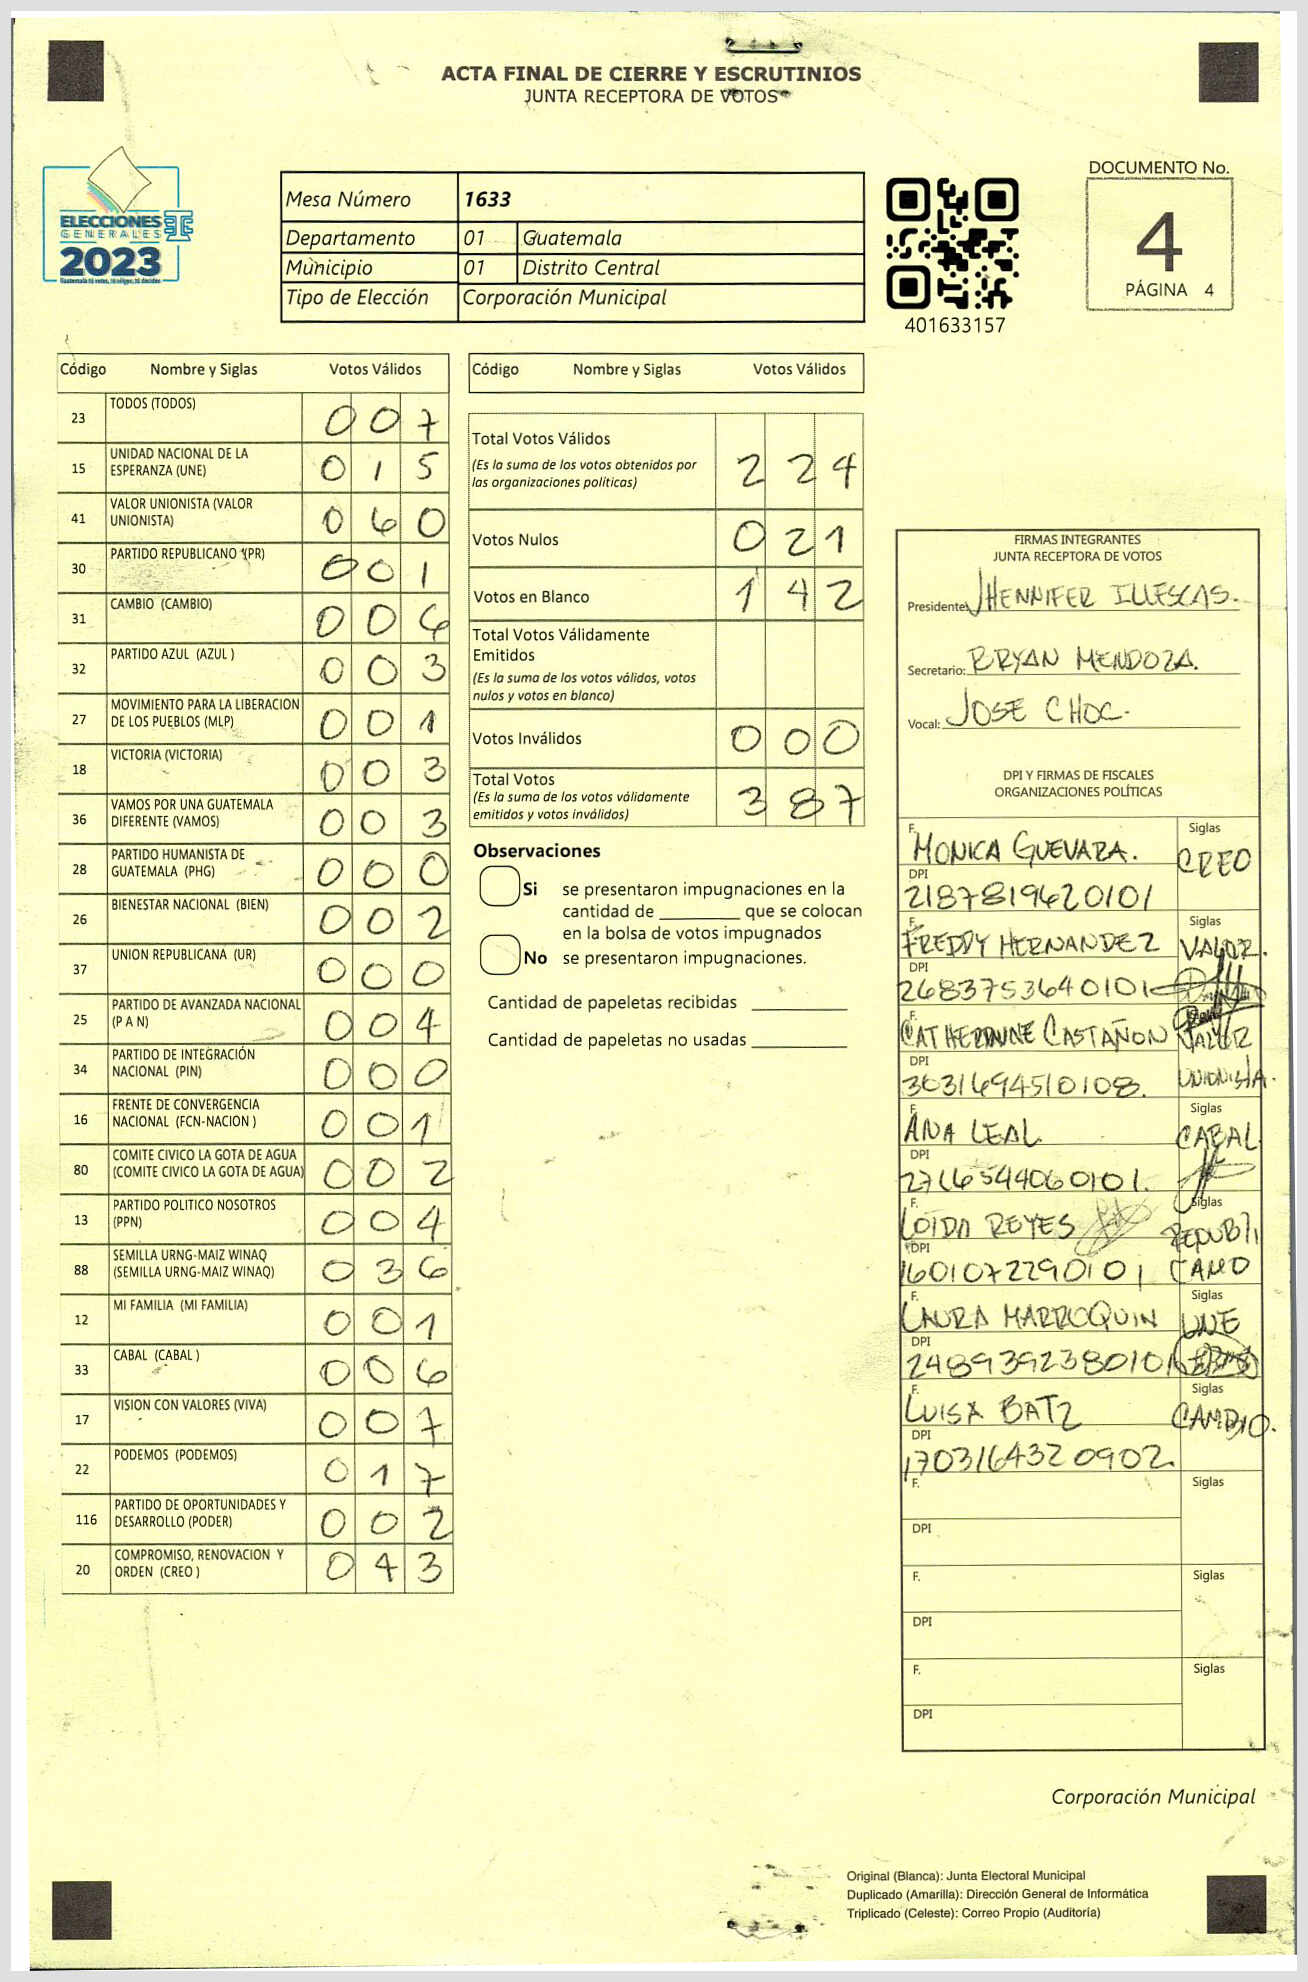 ACTA FINAL DE CIERRE Y ESCRUTINIOS
JUNTA RECEPTORA DE VOTOS
ELECCIONES
GENERALES
2023
Mesa Número 1633
Departamento 01 Guatemala
Municipio 01 Distrito Central
Tipo de Elección Corporación Municipal
401633157
DOCUMENTO No.
4
PÁGINA 4
Código Nombre y Siglas Votos Válidos
23 TODOS (TODOS) 0 0 7
15 UNIDAD NACIONAL DE LA ESPERANZA (UNE) 0 1 5
41 VALOR UNIONISTA (VALOR UNIONISTA) 0 6 0
30 PARTIDO REPUBLICANO (PR) 0 0 1
31 CAMBIO (CAMBIO) 0 0 6
32 PARTIDO AZUL (AZUL ) 0 0 3
27 MOVIMIENTO PARA LA LIBERACION DE LOS PUEBLOS (MLP) 0 0 1
18 VICTORIA (VICTORIA) 0 0 3
36 VAMOS POR UNA GUATEMALA DIFERENTE (VAMOS) 0 0 3
28 PARTIDO HUMANISTA DE GUATEMALA (PHG) 0 0 0
26 BIENESTAR NACIONAL (BIEN) 0 0 2
37 UNION REPUBLICANA (UR) 0 0 0
25 PARTIDO DE AVANZADA NACIONAL (P A N) 0 0 4
34 PARTIDO DE INTEGRACIÓN NACIONAL (PIN) 0 0 0
16 FRENTE DE CONVERGENCIA NACIONAL (FCN-NACION ) 0 0 1
80 COMITE CIVICO LA GOTA DE AGUA (COMITE CIVICO LA GOTA DE AGUA) 0 0 2
13 PARTIDO POLITICO NOSOTROS (PPN) 0 0 4
88 SEMILLA URNG-MAIZ WINAQ (SEMILLA URNG-MAIZ WINAQ) 0 3 6
12 MI FAMILIA (MI FAMILIA) 0 0 1
33 CABAL (CABAL ) 0 0 6
17 VISION CON VALORES (VIVA) 0 0 7
22 PODEMOS (PODEMOS) 0 1 7
116 PARTIDO DE OPORTUNIDADES Y DESARROLLO (PODER) 0 0 2
20 COMPROMISO, RENOVACION Y ORDEN (CREO ) 0 4 3
Código Nombre y Siglas Votos Válidos
Total Votos Válidos
(Es la suma de los votos obtenidos por
las organizaciones politicas) 2 2 4
Votos Nulos 0 2 1
Votos en Blanco 1 4 2
Total Votos Válidamente
Emitidos
(Es la suma de los votos válidos, votos
nulos y votos en blanco)
Votos Inválidos 0 0 0
Total Votos
(Es la suma de los votos válidamente
emitidos y votos inválidos) 3 8 7
Observaciones
Si se presentaron impugnaciones en la
cantidad de ________ que se colocan
en la bolsa de votos impugnados
No se presentaron impugnaciones.
Cantidad de papeletas recibidas
Cantidad de papeletas no usadas
FIRMAS INTEGRANTES
JUNTA RECEPTORA DE VOTOS
Presidente: JHENNIFER ILLESCAS.
Secretario: BRYAN MENDOZA.
Vocal: JOSE CHOC.
DPI Y FIRMAS DE FISCALES
ORGANIZACIONES POLÍTICAS
F. MONICA GUEVARA. Siglas CREO
DPI 2187819620101
F. FREDDY HERNANDEZ Siglas VALOR.
DPI 2683753640101
F. CATHERINNE CASTAÑON Siglas VALOR
DPI 3031694510108. UNIONISTA.
F. ANA LEAL Siglas CABAL
DPI 2716544060101.
F. LOIDA REYES Siglas REPUBLI
DPI 1601072290101 CANO
F. LAURA MARROQUIN Siglas UNE
DPI 2489392380101
F. LUISA BATZ Siglas CAMBIO.
DPI 1703164320902.
F. Siglas
DPI
F. Siglas
DPI
F. Siglas
DPI
Corporación Municipal
Original (Blanca): Junta Electoral Municipal
Duplicado (Amarilla): Dirección General de Informática
Triplicado (Celeste): Correo Propio (Auditoría)